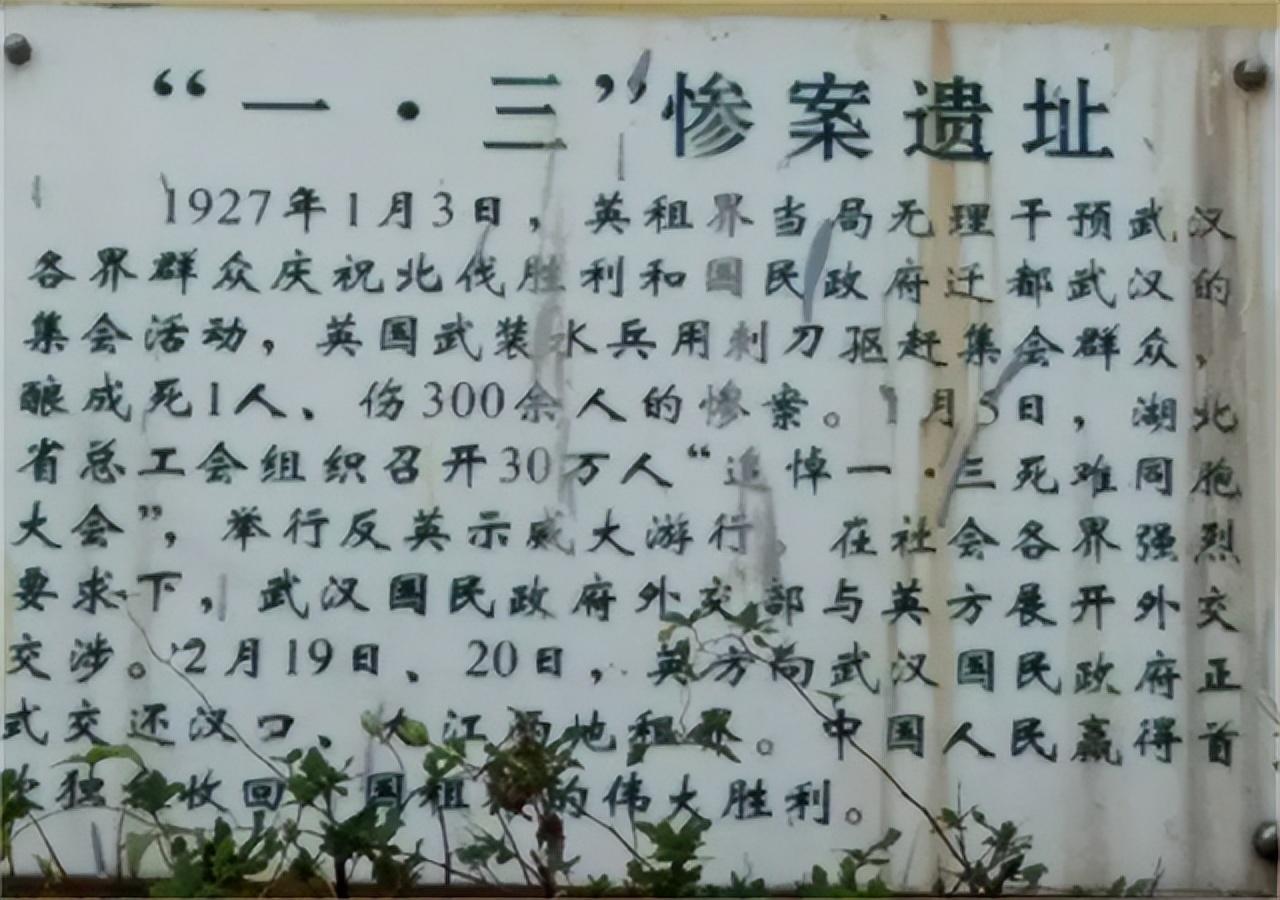 “一·三”惨案遗址
1927年1月3日，英租界当局无理干预武汉
各界群众庆祝北伐胜利和国民政府迁都武汉的
集会活动，英国武装水兵用刺刀驱赶集会群众，
酿成死1人、伤300余人的惨案。1月5日，湖北
省总工会组织召开30万人“追悼一·三死难同胞
大会”，举行反英示威大游行。在社会各界强烈
要求下，武汉国民政府外交部与英方展开外交
交涉。2月19日、20日，英方向武汉国民政府正
式交还汉口、九江两地租界。中国人民赢得首
次独收回国租的伟大胜利。